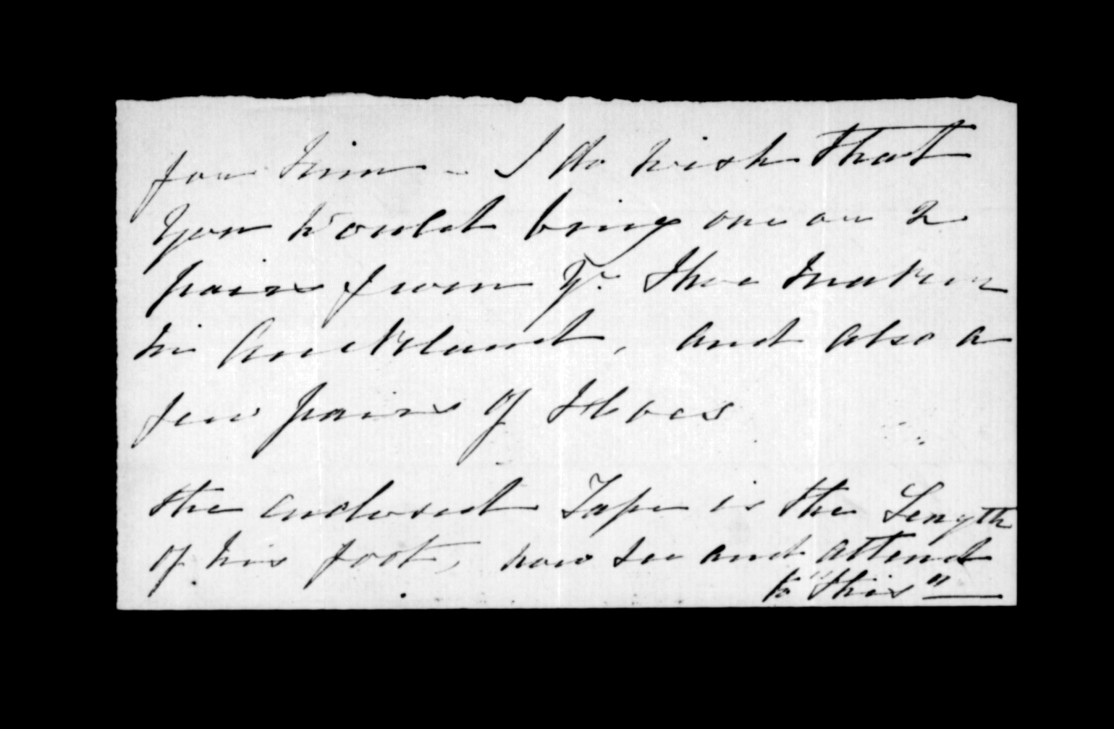 for him - I do wish that
you would bring one or 2
pairs from Yr. Shoe maker
in Auckland, and also a
few pairs of Shoes
the enclosed Tape is the Length
of his foot, now see and attend
to "this"